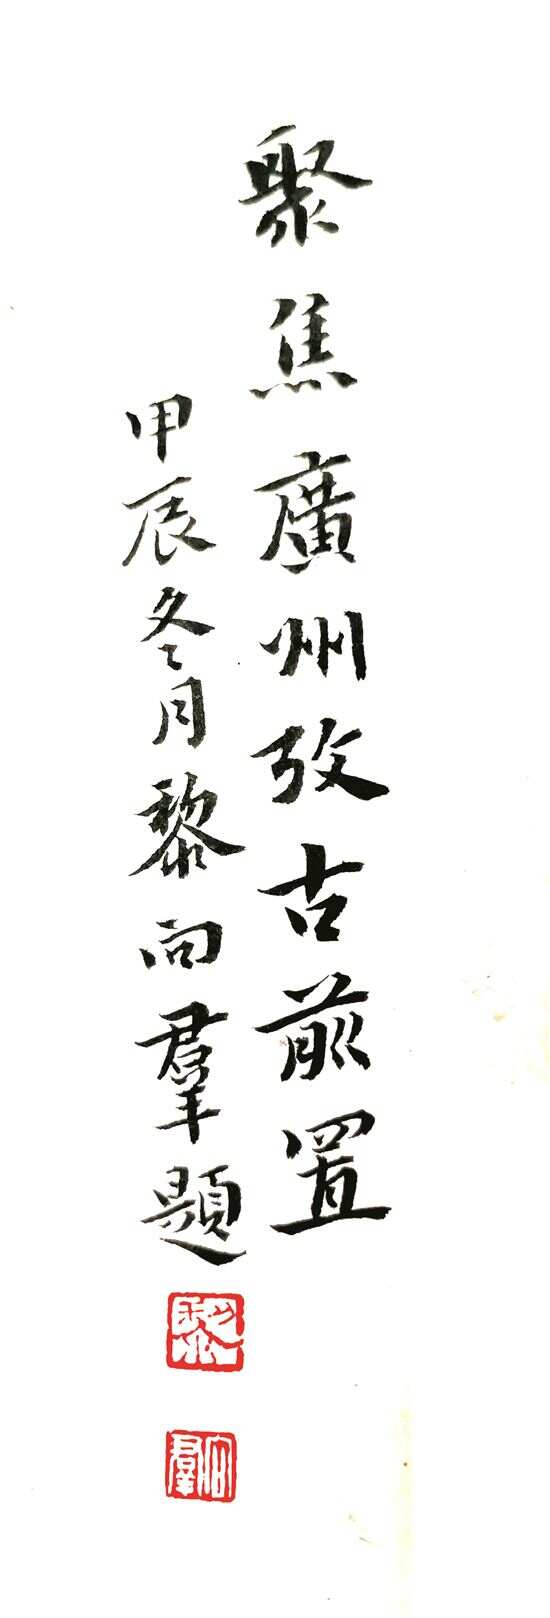 聚焦廣州攷古前置
甲辰冬月黎向羣題
黎
向羣